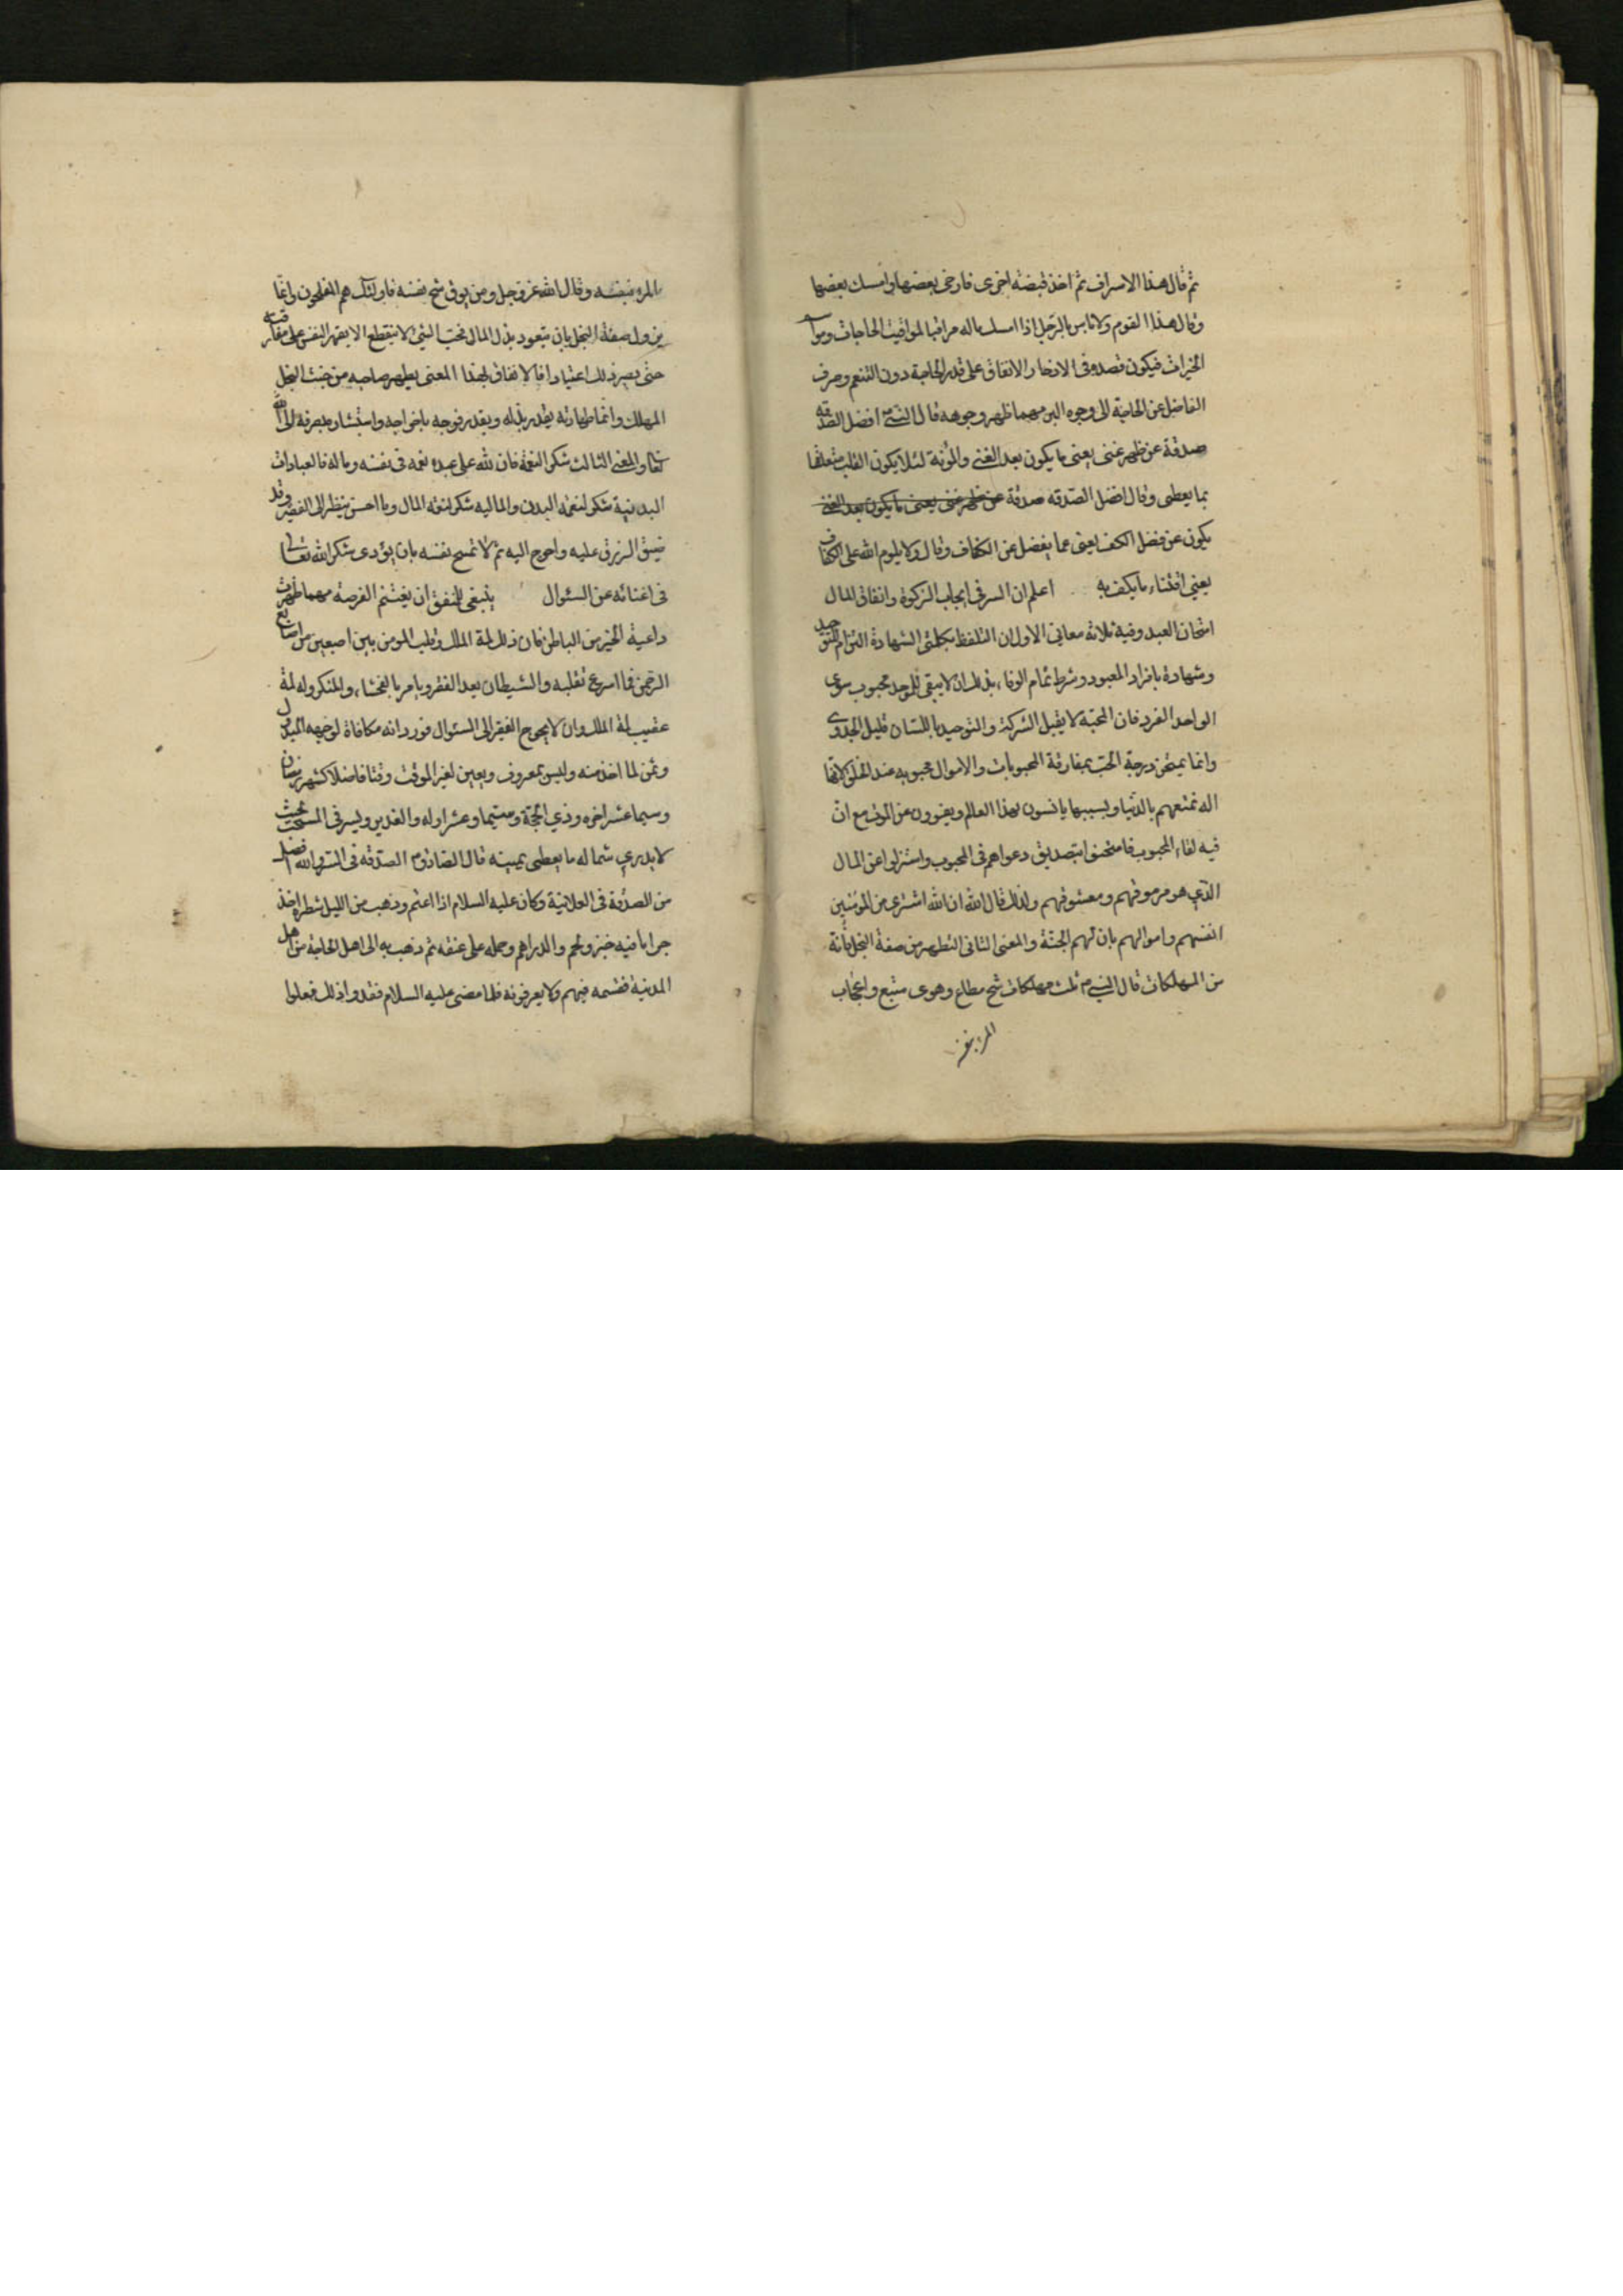 ثم قال هذا الاسراف ثم اخذ قبضة اخرى فارخى بعضها وامسك بعضها
وقال هذا القوم ولا باس بالرجل اذا امسك ماله مراقبا لمواقيت الحاجات ومواسم
الخيرات فيكون قصده فى الادخار الانفاق على قدر الحاجة دون التنعم وصرف
الفاضل عن الحاجة الى وجوه البر مهما ظهر وجوهه قال النبى ص افضل الصدقة
صدقة عن ظهر غنى يعنى ما يكون بعد الغنى والمؤنة لئلا يكون القلب متعلقا
بما يعطى وقال افضل الصدقه صدقة عن ظهر غنى يعنى ما يكون بعد الغنى
يكون عن فضل الكف يعنى عما يفضل عن الكفاف وقال ولا يلوم الله على الكفاف
يعنى اقتناء ما يكف به اعلم ان السر فى ايجاب الزكوة وانفاق المال
امتحان العبد وفيه ثلاثة معانى الاول ان التلفظ بكلمتى الشهادة التزام للتوحيد
وشهادة بافراد المعبود وشرط تمام الوفاء بذلك ان لا يبقى للموحد محبوب سوى
الواحد الفرد فان المحبه لا يقبل الشركة والتوحيد باللسان قليل الجدوى
وانما يمتحن درجة الحب بمفارقة المحبوبات والاموال محبوبه عند الخلق لانها
اله تمتعهم بالدنيا وبسببها يانسون بهذا العالم وينفرون عن الموت مع ان
فيه لقاء المحبوب فامتحنوا بتصديق دعواهم فى المحبوب واستنزلوا عن المال
الذى هو مرموقهم ومعشوقهم ولذلك قال الله ان الله اشترى من المومنين
انفسهم واموالهم بان لهم الجنة والمعنى الثانى التطهر من صفة البخل فانه
من المهلكات قال النبى ص ثلث مهلكات شح مطاع وهوى متبع واعجاب
المرء بنفسه
المرء بنفسه وقال الله عز وجل ومن يوق شح نفسه فاولئك هم المفلحون وانما
يزول صفة البخل بان يتعود بذل المال فحب الشئ لا ينقطع الا بقهر النفس على مفارقته
حتى يصير ذلك اعتيادا فالانفاق لهذا المعنى يطهر صاحبه من خبث البخل
المهلك وانما طهارته بقدر بذله وبقدر فرحه باخراجه واستبشاره بصرفه الى الله
تعالى والمعنى الثالث شكر النعمة فان لله على عبده نعمه فى نفسه وماله فالعبادات
البدنية شكر لنعمة البدن والماليه شكر لنعمة المال وما احسن ينظر الى الفقير وقد
ضيق الرزق عليه واحوج اليه ثم لا تسمح نفسه بان يؤدى شكر الله تعالى
فى اغنائه عن السئوال ينبغى للمنفق ان يغتنم الفرصة مهما ظهرت
داعية الخير من الباطن فان ذلك لمة الملك وقلب المومن بين اصبعين من اصابع
الرحمن فما اسرع تقلبه والشيطان يعد الفقر ويامر بالفحشاء والمنكر وله لمة
عقيب لمة الملك وان لا يحوج الفقير الى السئوال فورد انه مكافاة لوجهه المبذول
وثمن لما اخذ منه وليس بمعروف ويعين لغير الموقت وقتا فاضلا كشهر رمضان
وسيما عشر اخره وذى الحجة وسيما وعشر اوله والغدير ويسر فى المستحب بحيث
لا يدرى شماله ما يعطى يمينه قال الصادق ع الصدقه فى السر والله افضل
من الصدقة فى العلانية وكان عليه السلام اذا اعتم وذهب من الليل شطره اخذ
جرابا فيه خبز ولحم والدراهم وحمله على عنقه ثم ذهب به الى اهل الحاجة من اهل
المدينة فقسمه فيهم ولا يعرفونه فلما مضى عليه السلام فقدوا ذلك فعلموا